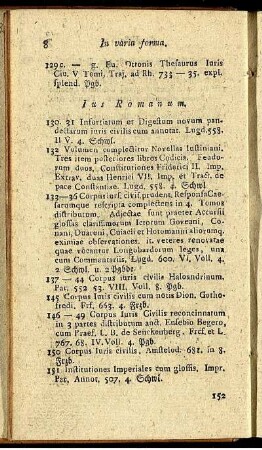 8 In varia forma.
129c. — g. Eu. Ottonis Thesaurus Iuris
Civ. V Tomi, Traj. ad Rh. 733 — 35. expl.
splend. Pgb.
Ius Romanum.
130. 31 Infortiatum et Digestum novum pan-
dectarum iuris civilis cum annotat. Lugd. 558.
II V. 4. Schwl.
132 Volumen complectitur Novellas Iustiniani.
Tres item posteriores libros Codicis. Feudo-
rum duos, Constitutiones Friderici II. Imp.
Extrav. duas Henrici VII. Imp. et Tract. de
pace Constantiae. Lugd. 558. 4. Schwl.
133—36 Corpus iuris civil. prudent. Responsa Cae-
sarumque rescripta complectens in 4. Tomos
distributum. Adjectae sunt praeter Accursii
glossas clarissimorum Ictorum Goveani, Co-
nani, Duareni, Cuiacii et Hotomanni aliorumq.
eximiae observationes. it. veteres renovatae
quae vocantur Longobardorum leges, una
cum Commentariis. Lugd. 600. VI. Voll. 4.
2 Schwl. u. 2 Pgbbe.
137 — 44 Corpus iuris civilis Haloandrinum.
Par. 552. 53. VIII. Voll. 8. Pgb.
145 Corpus Iuris civilis cum notis Dion. Gotho-
fredi, Frf. 663. 4. Frzb.
146 — 49 Corpus Iuris Civilis reconcinnatum
in 3 partes distributum auct. Eusebio Begero,
cum Praef. L. B. de Senckenberg. Frcf. et L.
767. 68. IV. Voll. 4. Pgb.
150 Corpus Iuris civilis, Amstelod. 681. in 8.
Frzb.
151 Institutiones Imperiales cum glossis. Impr.
Par. Annor. 507. 4. Schwl.
152